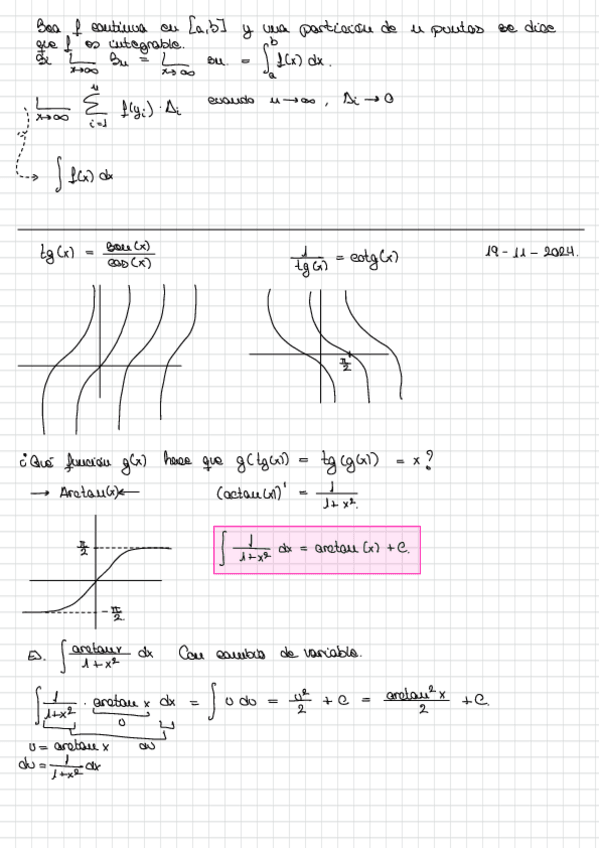 Sea f continua en [a,b] y una partición de n puntos se dice
que f es integrable.
Si Lim x→∞ Sn = Lim x→∞ sn = ∫_a^b f(x) dx.
Lim x→∞ Σ_{i=1}^n f(yi) · Δi cuando n→∞, Δi → 0
∫ f(x) dx
tg(x) = sen(x)/cos(x) 1/tg(x) = cotg(x) 19-11-2024.
π/2
¿Qué función g(x) hace que g(tg(x)) = tg(g(x)) = x?
→ Arctan(x) ← (actan(x))' = 1/1+x².
π/2
∫ 1/1+x² dx = arctan(x) + C.
-π/2
Ej. ∫ arctan x/1+x² dx Con cambio de variable.
∫ 1/1+x² · arctan x dx = ∫ u du = u²/2 + C = arctan² x/2 + C.
u
u = arctan x du
du = 1/1+x² dx